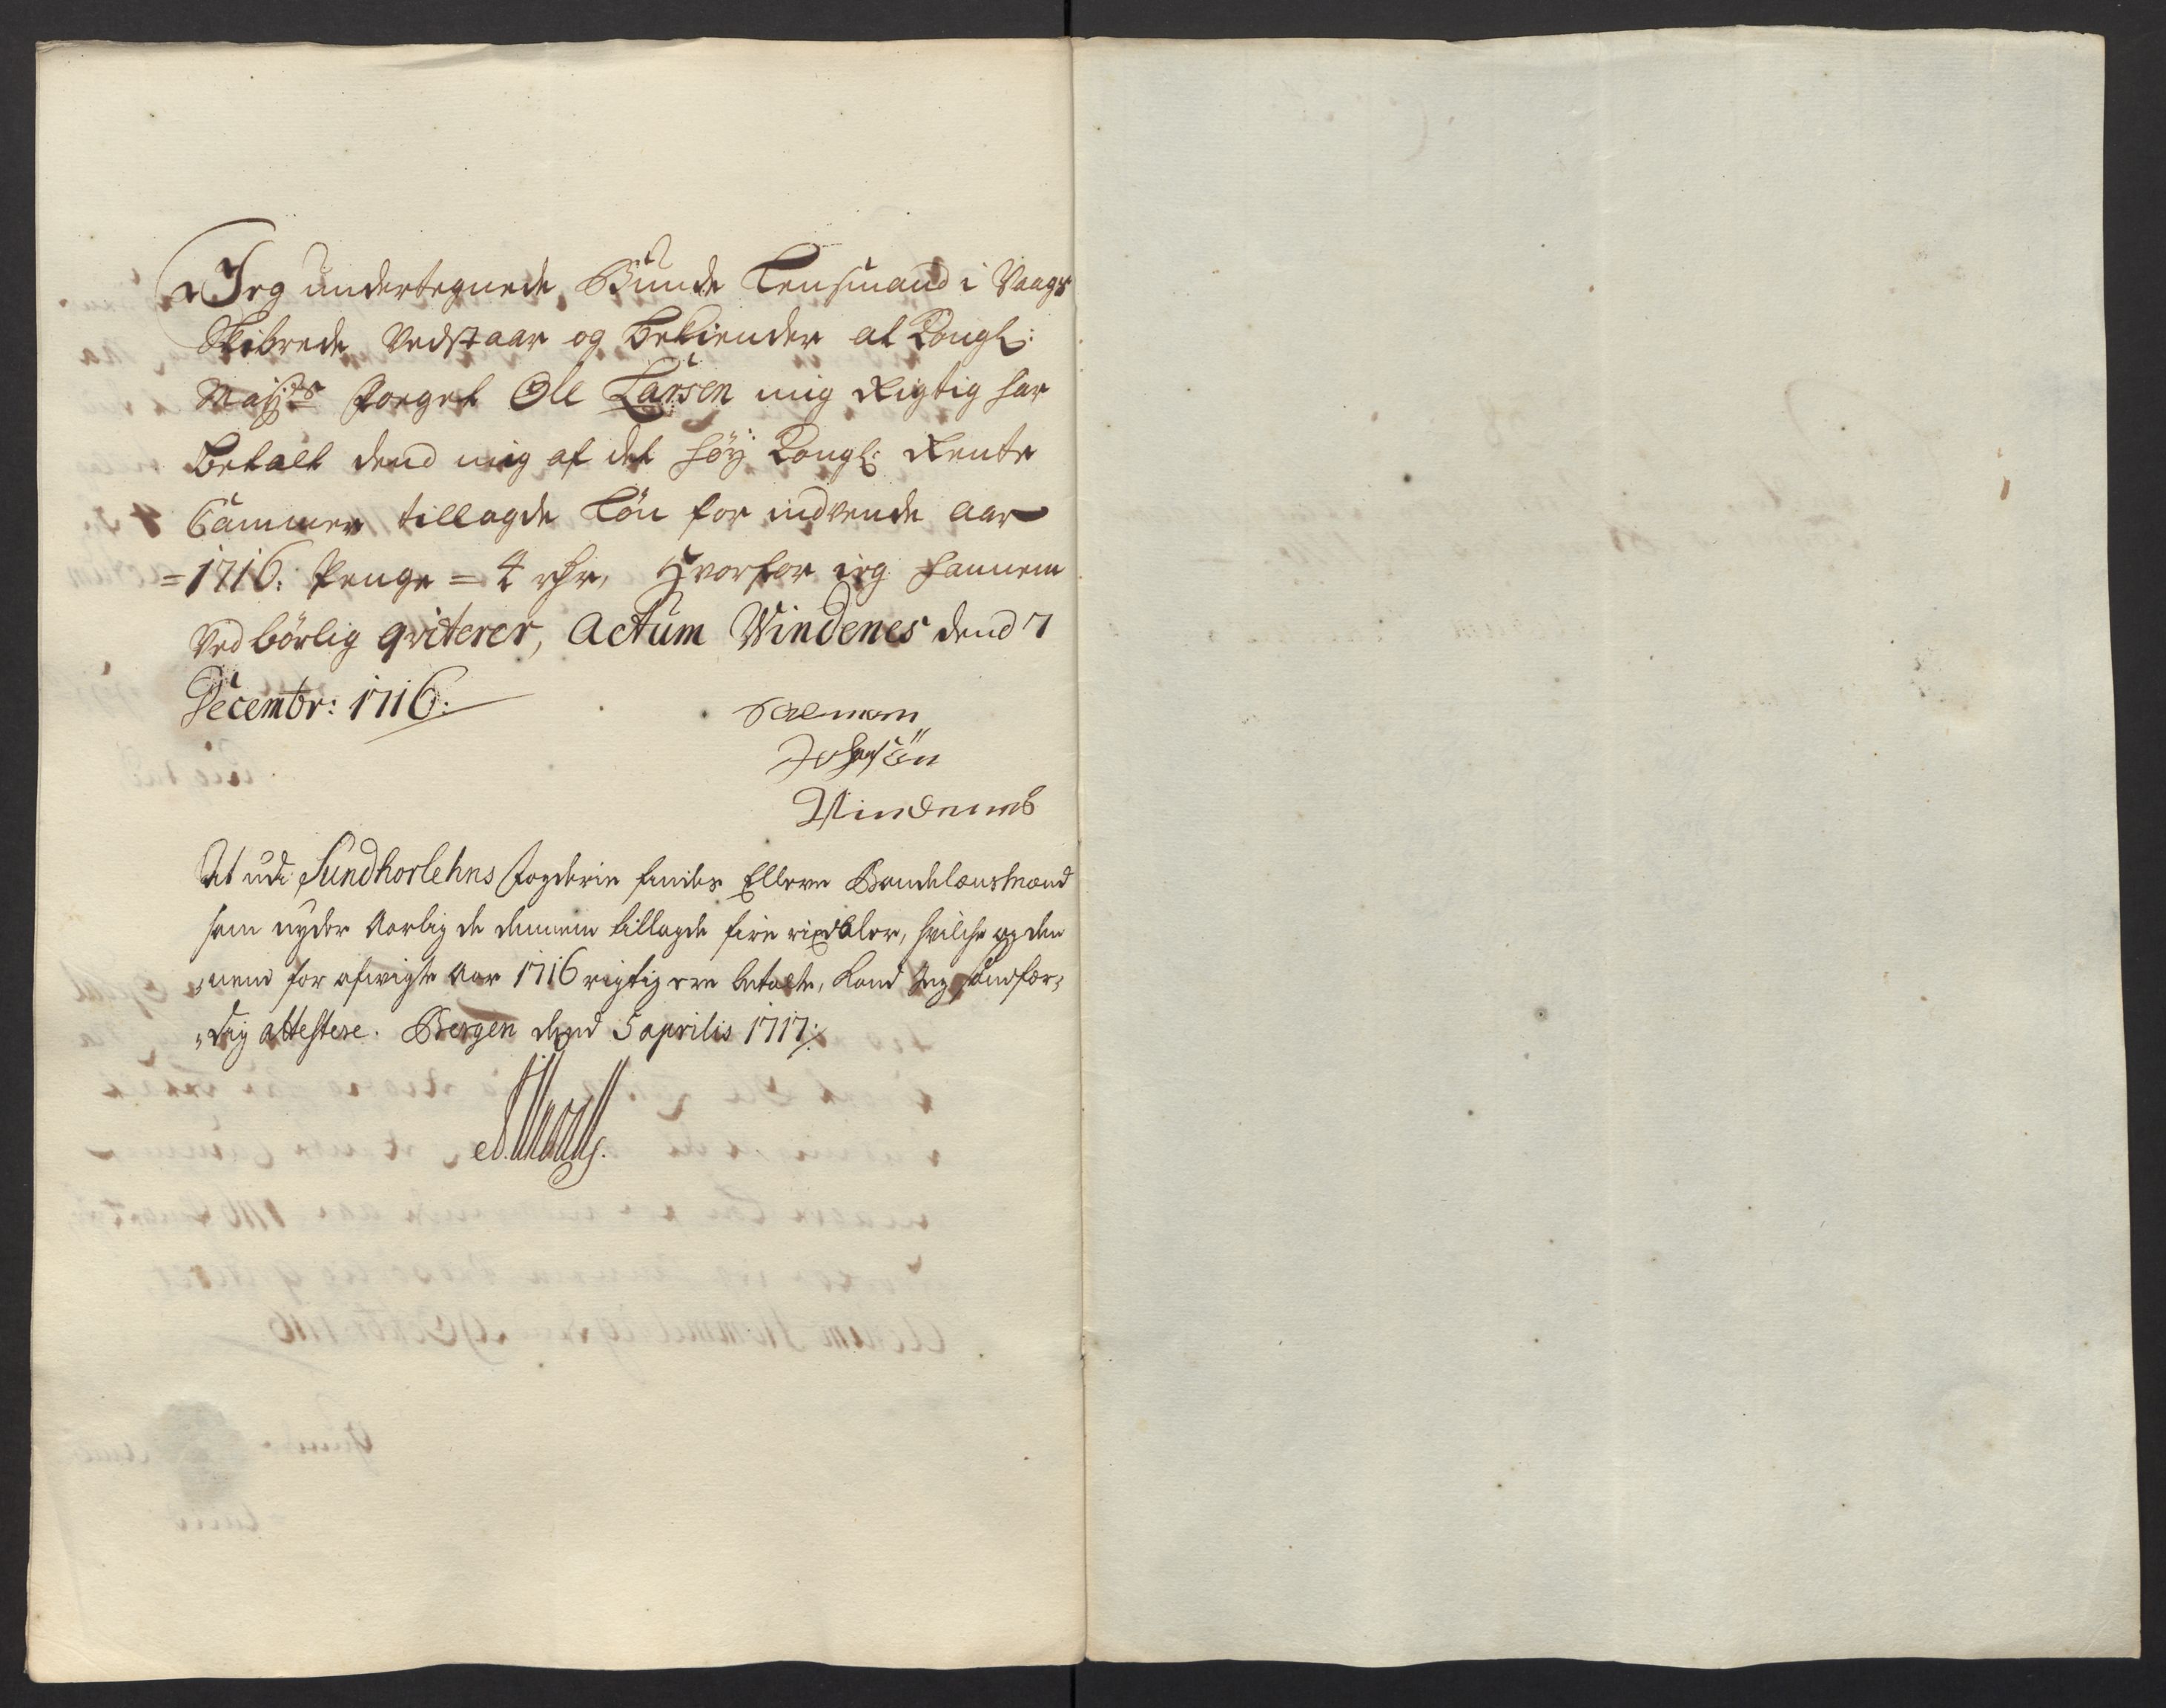 Jeg undertegnede Bunde Lensmand i Vaags
Skibrede Vedstaar og bekiender at Kongl:
Mayts foeget Ole Larsen mig Rigtig har
betalt dend mig af det höy Kongl: Rente
Cammer tillagde Lön for indverende aar
=1716: penge = 4 rdr, Hvorfor ieg hannem
Ved börlig qviterer, Actum Windenes dend 7
Decembr: 1716:
Salmam
Johansön
Windenes
At udi Sundhorlehns fogderie findes Elleve Bondelænsmænd
som nyder Aarlig de dennem tillagde fire rixdaler, hvilche og den
nem for afvigte Aar 1716 rigtig ere betalte, Kand Jeg sandfær,
dig attestere. Bergen dend 5 aprilis 1717: